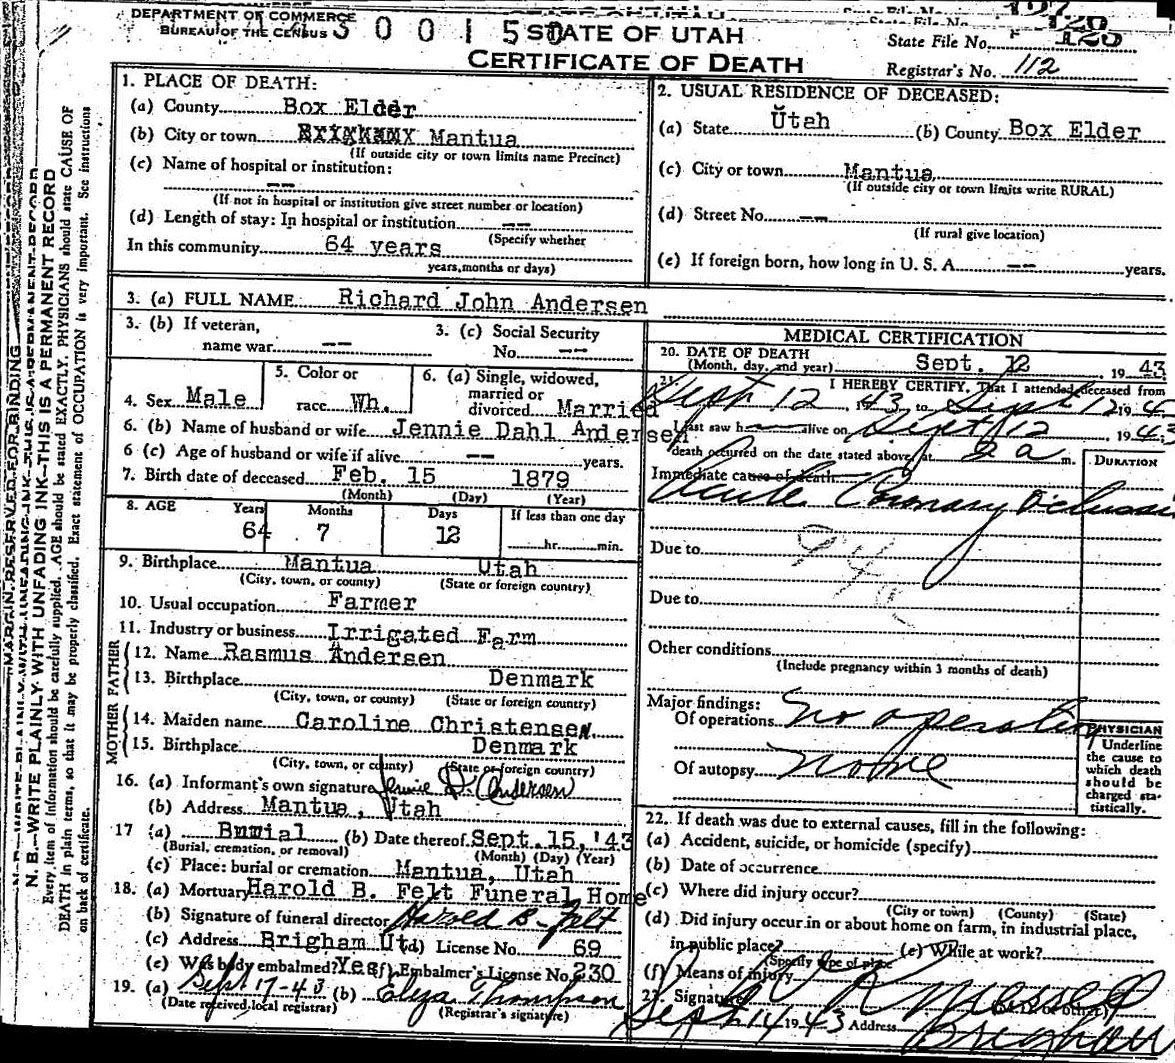 DEPARTMENT OF COMMERCE
BUREAU OF THE CENSUS
3 0 0 1 5 0
STATE OF UTAH
CERTIFICATE OF DEATH
State File No.
State File No.
Registrar's No. 112
MARGIN RESERVED FOR BINDING
N. B.—WRITE PLAINLY WITH UNFADING INK—THIS IS A PERMANENT RECORD
Every item of information should be carefully supplied. AGE should be stated EXACTLY. PHYSICIANS should state CAUSE OF
DEATH in plain terms, so that it may be properly classified. Exact statement of OCCUPATION is very important. See instructions
on back of certificate.
1. PLACE OF DEATH:
(a) County Box Elder
(b) City or town Mantua
(If outside city or town limits name Precinct)
(c) Name of hospital or institution:
--
(If not in hospital or institution give street number or location)
(d) Length of stay: In hospital or institution --
(Specify whether
In this community 64 years
years, months or days)
2. USUAL RESIDENCE OF DECEASED:
(a) State Utah (b) County Box Elder
(c) City or town Mantua
(If outside city or town limits write RURAL)
(d) Street No. --
(If rural give location)
(e) If foreign born, how long in U. S. A. -- years.
3. (a) FULL NAME Richard John Andersen
3. (b) If veteran,
name war --
3. (c) Social Security
No. --
4. Sex Male
5. Color or
race Wh.
6. (a) Single, widowed,
married or
divorced Married
6. (b) Name of husband or wife Jennie Dahl Andersen
6 (c) Age of husband or wife if alive -- years.
7. Birth date of deceased Feb. 15 1879
(Month) (Day) (Year)
8. AGE Years Months Days If less than one day
64 7 12 hr. min.
9. Birthplace Mantua Utah
(City, town, or county) (State or foreign country)
10. Usual occupation Farmer
11. Industry or business Irrigated Farm
FATHER
12. Name Rasmus Andersen
13. Birthplace Denmark
(City, town, or county) (State or foreign country)
MOTHER
14. Maiden name Caroline Christensen
15. Birthplace Denmark
(City, town, or county) (State or foreign country)
16. (a) Informant's own signature Jennie D. Andersen
(b) Address Mantua, Utah
17 (a) Burial (b) Date thereof Sept. 15, '43
(Burial, cremation, or removal) (Month) (Day) (Year)
(c) Place: burial or cremation Mantua, Utah
18. (a) Mortuary Harold B. Felt Funeral Home
(b) Signature of funeral director Harold B. Felt
(c) Address Brigham Ut (d) License No. 69
(e) Was body embalmed? Yes (f) Embalmer's License No. 230
19. (a) Sept 17-43 (b) Eliza Thompson
(Date received local registrar) (Registrar's signature)
MEDICAL CERTIFICATION
20. DATE OF DEATH
(Month, day, and year) Sept. 12 1943
21. I HEREBY CERTIFY, That I attended deceased from
Sept 12, 1943 to Sept 12 194
I last saw h alive on Sept 12, 194
death occurred on the date stated above, at 2 a m.
DURATION
Immediate cause of death
Acute Coronary Occlusion
Due to
Due to
Other conditions
(Include pregnancy within 3 months of death)
Major findings:
Of operations no operation
Of autopsy none
PHYSICIAN
Underline
the cause to
which death
should be
charged sta-
tistically.
22. If death was due to external causes, fill in the following:
(a) Accident, suicide, or homicide (specify)
(b) Date of occurrence
(c) Where did injury occur?
(City or town) (County) (State)
(d) Did injury occur in or about home on farm, in industrial place,
in public place? (e) While at work?
(Specify type of place
(f) Means of injury
23. Signature
Sept 14 1943 Address Brigham